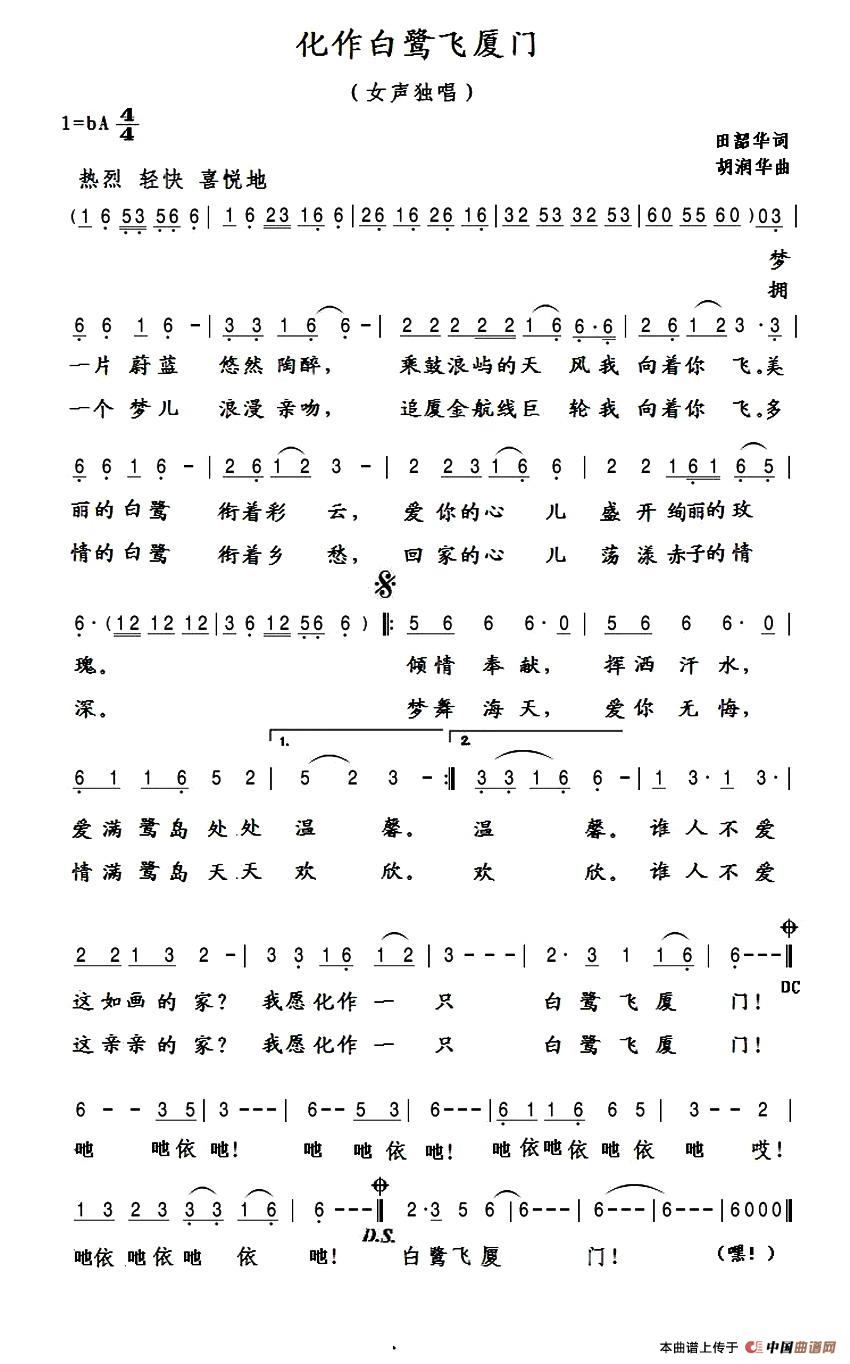 化作白鹭飞厦门
（女声独唱）
1=bA 4/4
田韶华词
胡润华曲
热烈 轻快 喜悦地
(1 6 53 56 6 | 1 6 23 16 6 | 26 16 26 16 | 32 53 32 53 | 60 55 60 ) 03 |
梦
拥
6 6 1 6 - | 3 3 1 6 6 - | 2 2 2 2 2 1 6 6·6 | 2 6 1 2 3 · 3 |
一片 蔚蓝 悠然 陶醉， 乘鼓浪屿的天 风我 向着你 飞。美
一个 梦儿 浪漫 亲吻， 追厦金航线巨 轮我 向着你 飞。多
6 6 1 6 - | 2 6 1 2 3 - | 2 2 3 1 6 6 | 2 2 1 6 1 6 5 |
丽的 白鹭 衔着彩 云， 爱 你的心 儿 盛 开 绚丽的玫
情的 白鹭 衔着乡 愁， 回 家的心 儿 荡 漾 赤子的情
6 · (12 12 12 | 3 6 12 56 6 ) ‖: 5 6 6 6 · 0 | 5 6 6 6 · 0 |
瑰。 倾情 奉献， 挥洒 汗水，
深。 梦舞 海天， 爱你 无悔，
1. 2.
6 1 1 6 5 2 | 5 2 3 - :‖ 3 3 1 6 6 - | 1 3 · 1 3 · |
爱满 鹭岛 处处 温 馨。 温 馨。 谁人不爱
情满 鹭岛 天天 欢 欣。 欢 欣。 谁人不爱
2 2 1 3 2 - | 3 3 1 6 1 2 | 3 - - - | 2 · 3 1 1 6 | 6 - - - ‖
DC
这如画的 家？ 我愿化作 一 只 白鹭飞厦 门！
这亲亲的 家？ 我愿化作 一 只 白鹭飞厦 门！
6 - - 3 5 | 3 - - - | 6 - - 5 3 | 6 - - - | 6 1 1 6 6 5 | 3 - - 2 |
吔 吔依 吔！ 吔 吔依 吔！ 吔依吔依吔依 吔 哎！
1 3 2 3 3 3 1 6 | 6 - - - ‖ 2 · 3 5 6 6 | 6 - - - | 6 - - - | 6 - - - | 6000 ‖
D.S.
吔依 吔依吔 依 吔！ 白鹭飞厦 门！ （嘿！）
本曲谱上传于 中国曲谱网